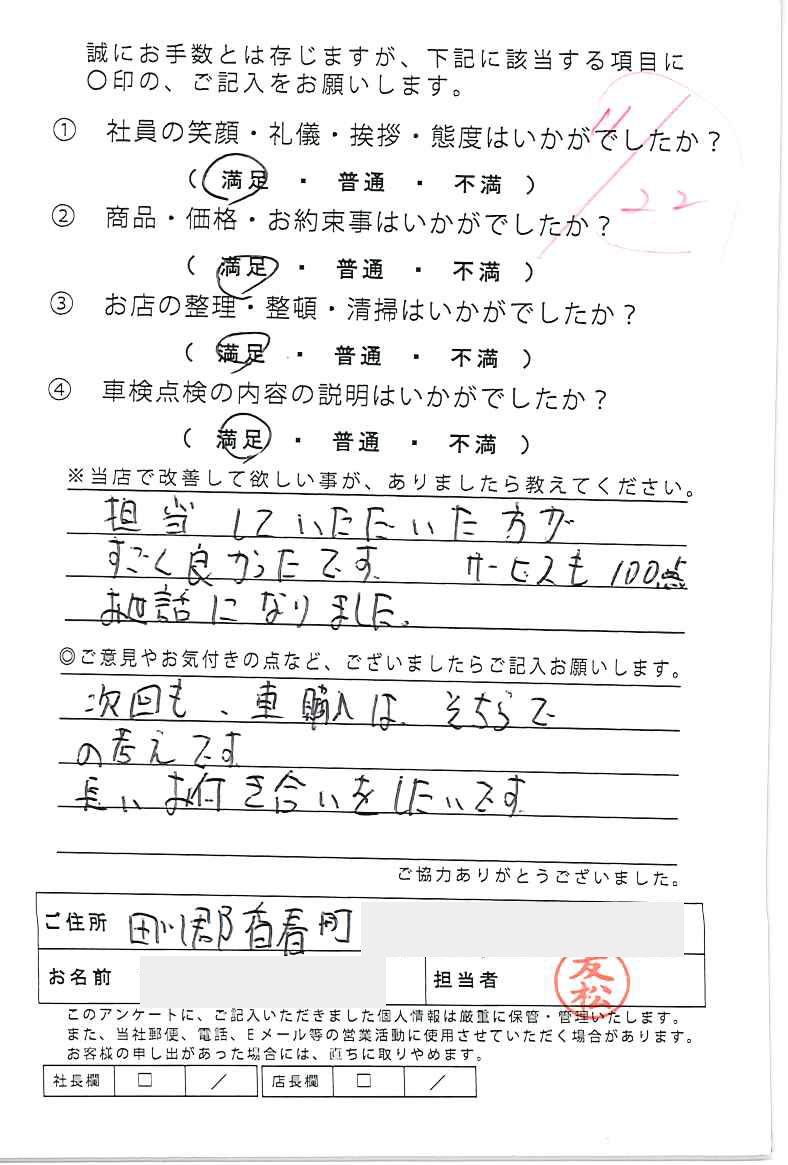 誠にお手数とは存じますが、下記に該当する項目に
〇印の、ご記入をお願いします。
11/22
① 社員の笑顔・礼儀・挨拶・態度はいかがでしたか？
( 満足 ・ 普通 ・ 不満 )
② 商品・価格・お約束事はいかがでしたか？
( 満足 ・ 普通 ・ 不満 )
③ お店の整理・整頓・清掃はいかがでしたか？
( 満足 ・ 普通 ・ 不満 )
④ 車検点検の内容の説明はいかがでしたか？
( 満足 ・ 普通 ・ 不満 )
※当店で改善して欲しい事が、ありましたら教えてください。
担当していただいた方が
すごく良かったです。 サービスも100点
お世話になりました。
◎ご意見やお気付きの点など、ございましたらご記入お願いします。
次回も、車購入は、そちらで
の考えです。
長いお付き合いをしたいです。
ご協力ありがとうございました。
ご住所 田川郡香春町
お名前 担当者 友松
このアンケートに、ご記入いただきました個人情報は厳重に保管・管理いたします。
また、当社郵便、電話、Eメール等の営業活動に使用させていただく場合があります。
お客様の申し出があった場合には、直ちに取りやめます。
社長欄 □ ／ 店長欄 □ ／